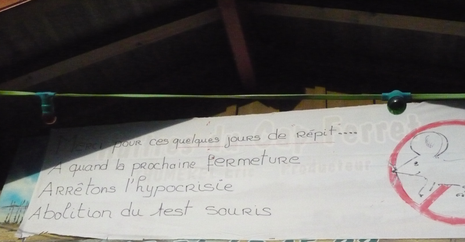 pour ces quelques jours de répit....
A quand la prochaine fermeture
Arrêtons l'hypocrisie
Abolition du test souris